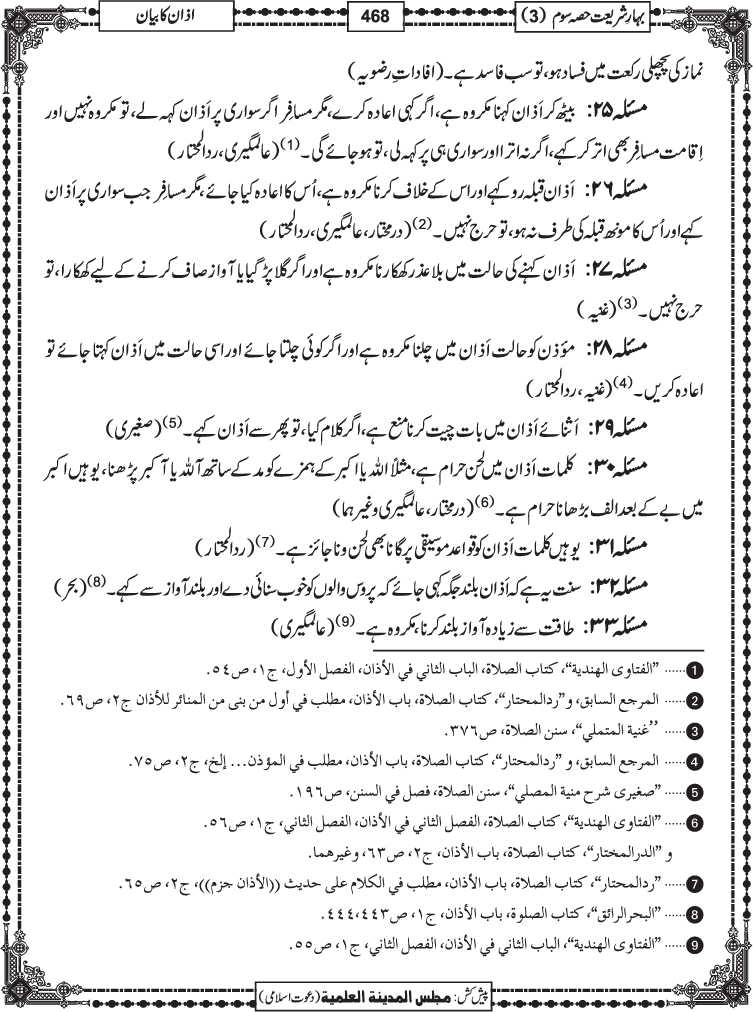 بہارِ شریعت حصہ سوم (3)
468
اذان کا بیان
نماز کی پچھلی رکعت میں فساد ہو، تو سب فاسد ہے۔ (افاداتِ رضویہ)
مسئلہ ۲۵: بیٹھ کر اَذان کہنا مکروہ ہے، اگر کہی اعادہ کرے، مگر مسافر اگر سواری پر اَذان کہہ لے، تو مکروہ نہیں اور
اِقامت مسافر بھی اتر کر کہے، اگر نہ اترا اور سواری ہی پر کہہ لی، تو ہو جائے گی۔ (1) (عالمگیری، ردالمحتار)
مسئلہ ۲۶: اَذان قبلہ رو کہے اور اس کے خلاف کرنا مکروہ ہے، اُس کا اعادہ کیا جائے، مگر مسافر جب سواری پر اَذان
کہے اور اُس کا مونھ قبلہ کی طرف نہ ہو، تو حرج نہیں۔ (2) (درمختار، عالمگیری، ردالمحتار)
مسئلہ ۲۷: اَذان کہنے کی حالت میں بلا عذر کھکارنا مکروہ ہے اور اگر گلا پڑ گیا یا آواز صاف کرنے کے لیے کھکارا، تو
حرج نہیں۔ (3) (غنیہ)
مسئلہ ۲۸: مؤذن کو حالت اَذان میں چلنا مکروہ ہے اور اگر کوئی چلتا جائے اور اسی حالت میں اَذان کہتا جائے تو
اعادہ کریں۔ (4) (غنیہ، ردالمحتار)
مسئلہ ۲۹: اَثنائے اَذان میں بات چیت کرنا منع ہے، اگر کلام کیا، تو پھر سے اَذان کہے۔ (5) (صغیری)
مسئلہ ۳۰: کلمات اَذان میں لحن حرام ہے، مثلاً اللہ یا اکبر کے ہمزے کو مد کے ساتھ آللہ یا آکبر پڑھنا، یوہیں اکبر
میں بے کے بعد الف بڑھانا حرام ہے۔ (6) (درمختار، عالمگیری وغیرہما)
مسئلہ ۳۱: یوہیں کلمات اَذان کو قواعد موسیقی پر گانا بھی لحن و ناجائز ہے۔ (7) (ردالمحتار)
مسئلہ ۳۲: سنت یہ ہے کہ اَذان بلند جگہ کہی جائے کہ پروس والوں کو خوب سنائی دے اور بلند آواز سے کہے۔ (8) (بحر)
مسئلہ ۳۳: طاقت سے زیادہ آواز بلند کرنا، مکروہ ہے۔ (9) (عالمگیری)
1 ...... "الفتاوى الهندية"، كتاب الصلاة، الباب الثاني في الأذان، الفصل الأول، ج١، ص٥٤.
2 ...... المرجع السابق، و"ردالمحتار"، كتاب الصلاة، باب الأذان، مطلب في أول من بنى من المنائر للأذان ج٢، ص٦٩.
3 ...... "غنية المتملي"، سنن الصلاة، ص٣٧٦.
4 ...... المرجع السابق، و "ردالمحتار"، كتاب الصلاة، باب الأذان، مطلب في المؤذن... إلخ، ج٢، ص٧٥.
5 ...... "صغيرى شرح منية المصلي"، سنن الصلاة، فصل في السنن، ص١٩٦.
6 ...... "الفتاوى الهندية"، كتاب الصلاة، الفصل الثاني في الأذان، الفصل الثاني، ج١، ص٥٦.
و "الدرالمختار"، كتاب الصلاة، باب الأذان، ج٢، ص٦٣، وغيرهما.
7 ...... "ردالمحتار"، كتاب الصلاة، باب الأذان، مطلب في الكلام على حديث ((الأذان جزم))، ج٢، ص٦٥.
8 ...... "البحرالرائق"، كتاب الصلوة، باب الأذان، ج١، ص٤٤٣،٤٤٤.
9 ...... "الفتاوى الهندية"، الباب الثاني في الأذان، الفصل الثاني، ج١، ص٥٥.
پیش کش: مجلس المدينة العلمية (دعوتِ اسلامی)